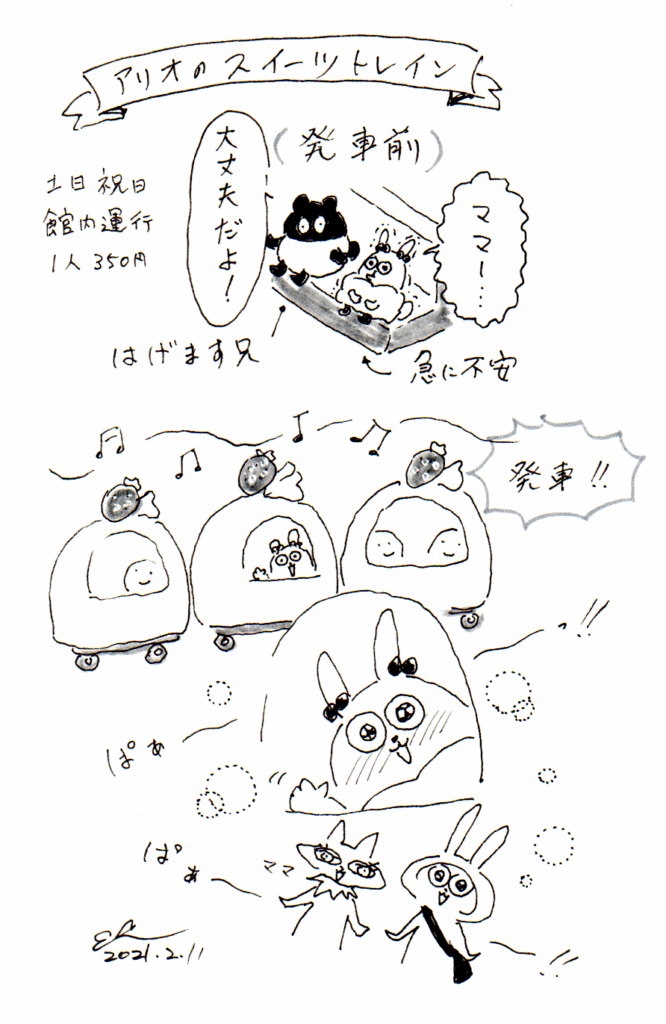 アリオのスイーツトレイン
(発車前)
土日祝日
館内運行
1人350円
大丈夫だよ!
ママー…
はげます兄
急に不安
発車!!
!!
ぱぁ
ぱぁ
ママ
2021.2.11
!!